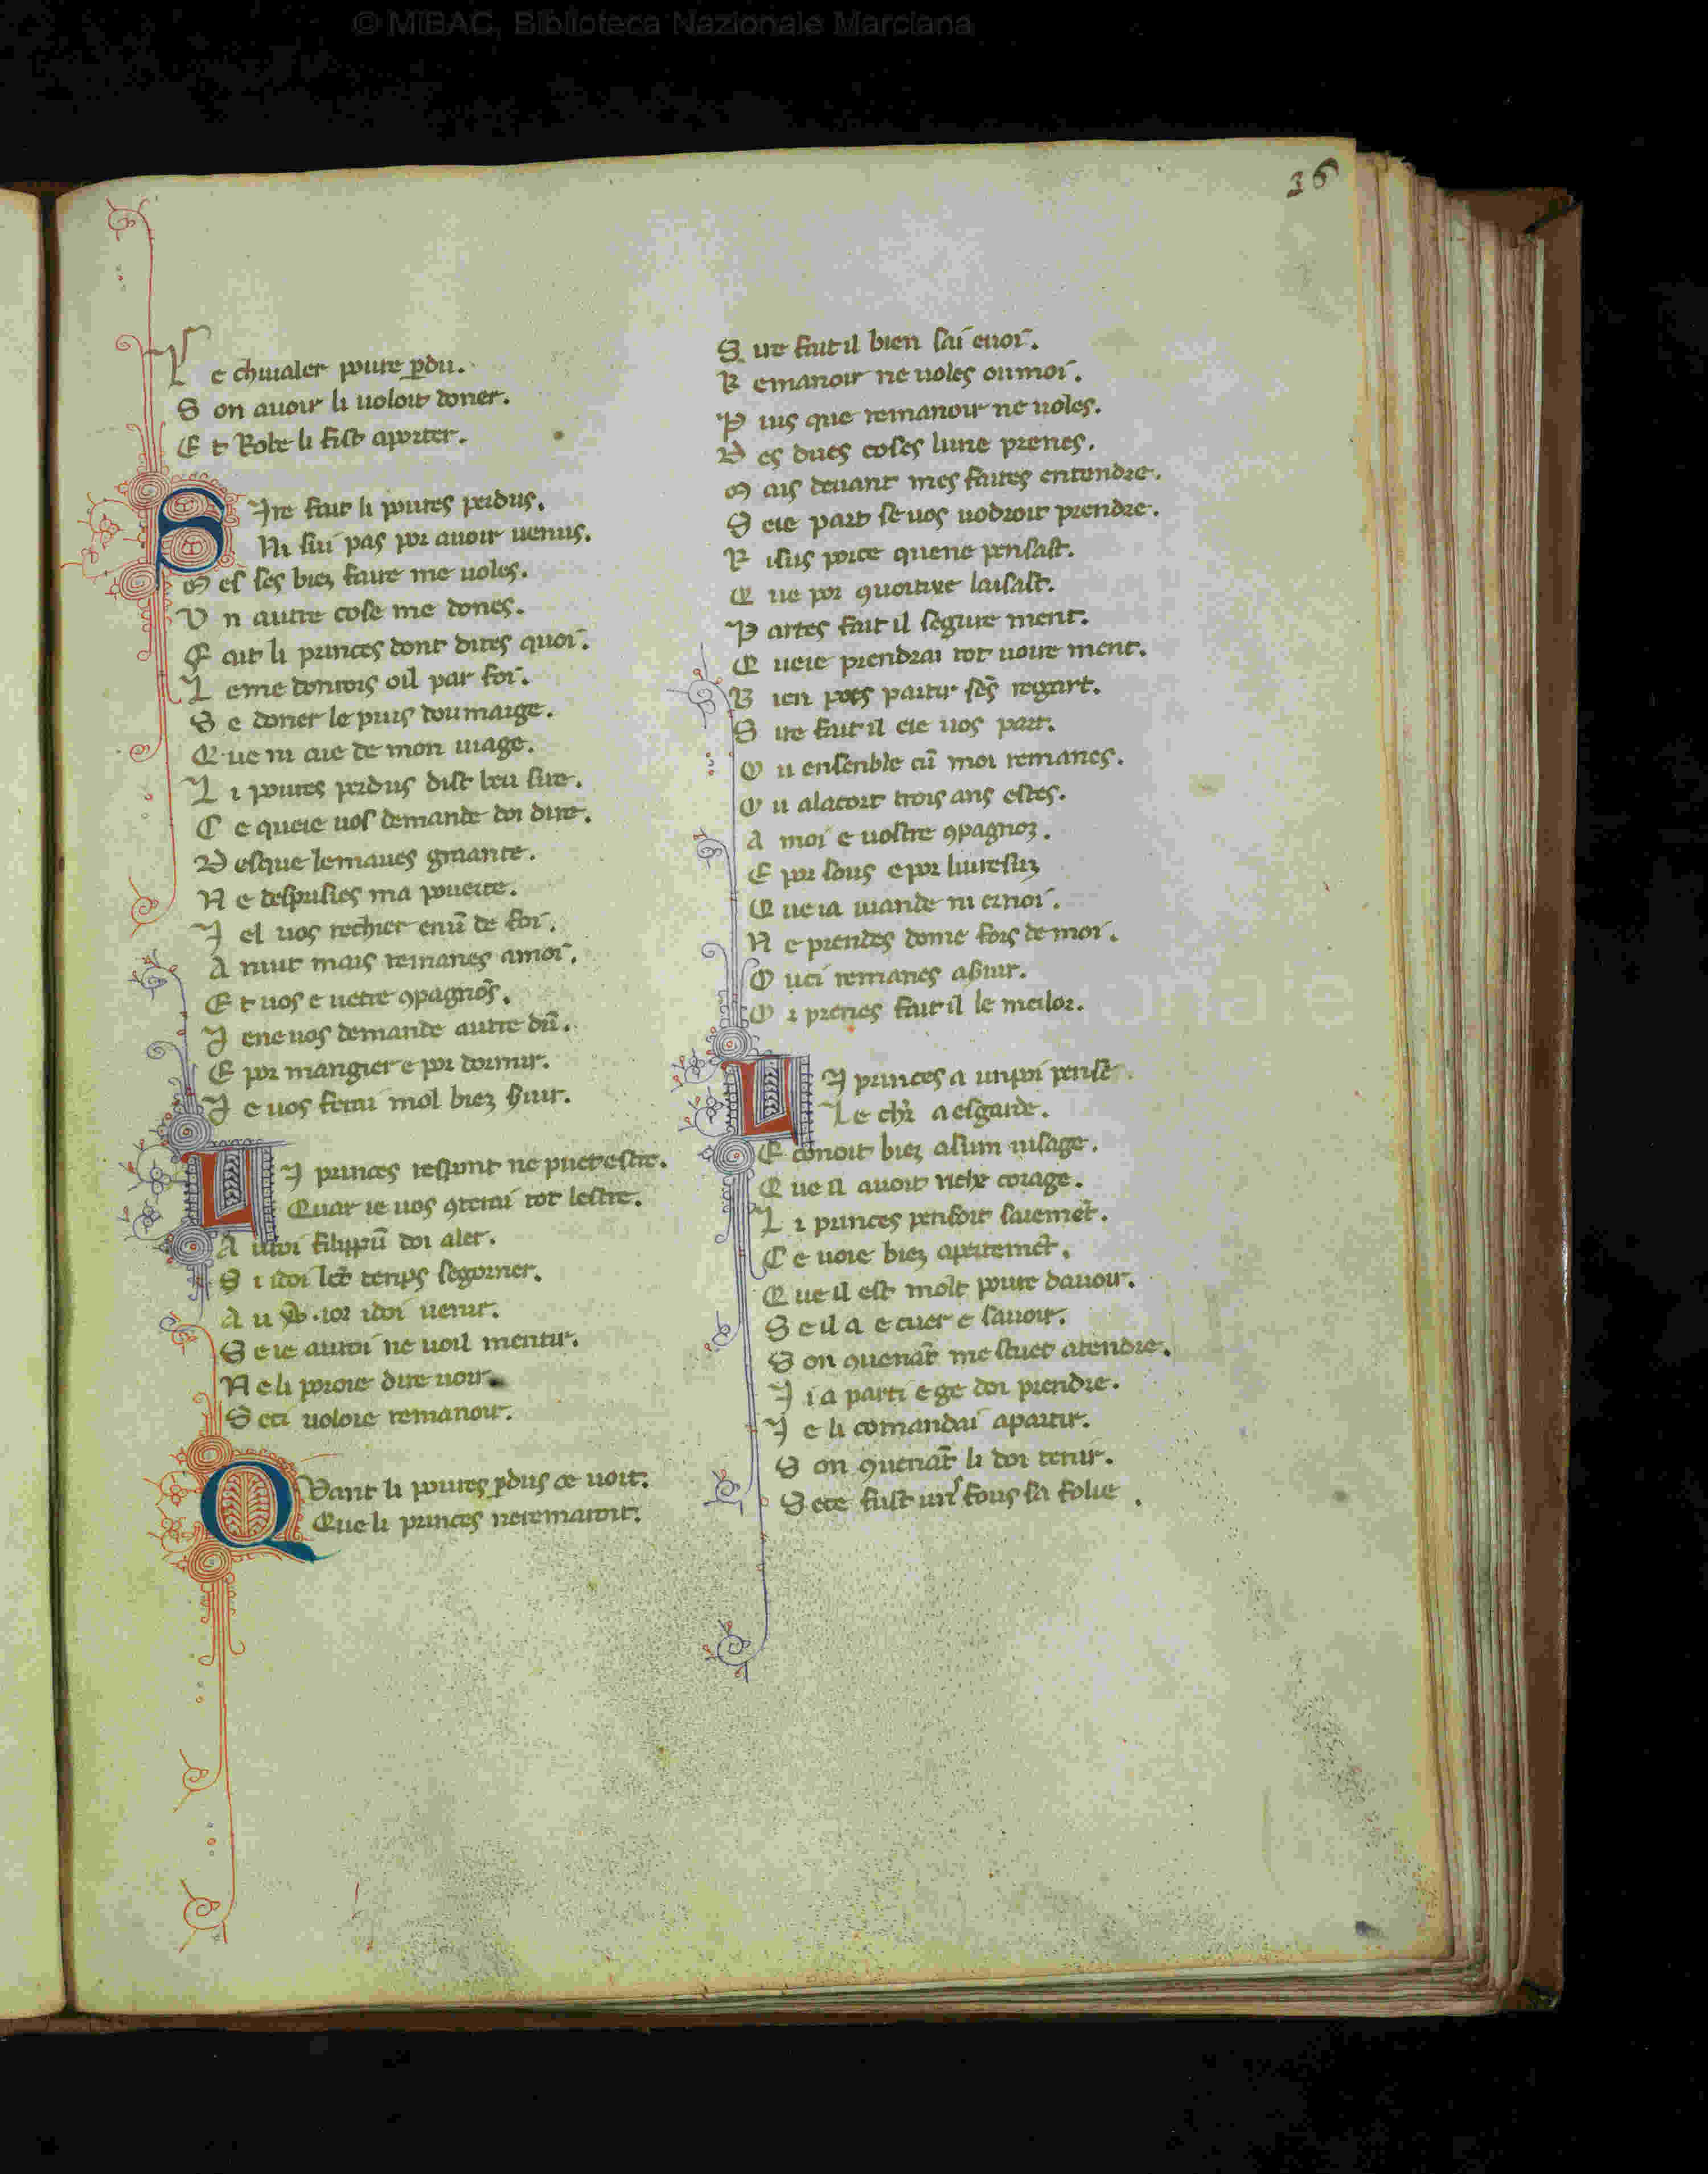 © MIBAC, Biblioteca Nazionale Marciana
36
L e chiualer poure pdu.
S on auoir li uoloit doner.
E t Robe li fist aporter.
SIre fait li poures perdus.
Ni sui pas por auoir uenus.
M es ses biez faire me uoles.
V n autre cose me dones.
F ait li princes dont dites quoi.
L eme donrois oil par foi.
S e doner le puis doumaige.
Q ue ni aie de mon uiage.
L i poures perdus dist beu sire.
C e queie uos demande doi dire.
D esque lemaues graante.
N e despisies ma pouerte.
I el uos rechier enū de foi.
A nuit mais remanes amoi.
E t uos e uetre ꝯpagnōs.
I ene uos demande autre dū.
E por mangier e por dormir.
I e uos ferai mol biez seruir.
LI princes respont ne puet estre.
Quar ie uos ꝯterai tot lestre.
A uroi filippū doi aler.
S i idoi temps segorner.
A u .ior idoi uenir.
S e ie auroi ne uoil mentir.
N e li poroie dire uoir.
S eci uoloie remanoir.
QVant li poures pdus ce uoit.
Que li princes neremaroit.
S ire fait il bien sai euoi.
R emanoir ne uoles oumoi.
P uis que remanoir ne uoles.
D es dues coses lune prenes.
M ais deuant mes faites entendre.
S eie part se uos uodroit prendre.
R isus porce quene pensast.
Q ue por ꝯuoitixe laisast.
P artes fait il segure ment.
Q ueie prendrai tot uoire ment.
B ien poes partir sēs regart.
S ire fait il eie uos part.
O u ensenble cū moi remanes.
O u alacort trois ans estes.
A moi e uostre ꝯpagnoz.
E por sous e por liuresuz
Q ue ia uiande ni ernoi.
N e prendes dome fors de moi.
O uci remanes aseruir.
O r prenes fait il le meilor.
LI princes a unpoi pense.
Le chr aesgarde.
E conoit biez asum uisage.
Q ue il auoit riche corage.
L i princes pensoit saiemēt.
C e uoie biez apertemēt.
Q ue il est molt poure dauoir.
S e il a e cuer e sauoir.
S on ꝯuenāt me stuet atendre.
I i a parti e ge doi prendre.
I e li comandai apartir.
S on ꝯuenāt li doi tenir.
S ece fust uns fous sa folie.